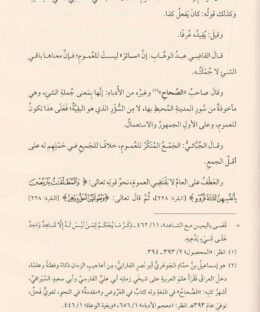 وكذلك قولُه: كانَ يَفعلُ كذا.
وقيل: يُفيدُه عُرفًا.
قال القاضي عبدُ الوهاب: إنَّ «سائرَ» ليستْ للعُموم، فإنَّ معناها باقي
الشيءِ لا جُملَتُه.
وقال صاحبُ «الصِّحاح» وغيرُه من الأدباءِ: إنَّها بمعنى جُملةِ الشيءِ، وهي
مأخوذةٌ من سُورِ المدينةِ المُحيطِ بها، لا من السُّؤرِ الذي هو البقيَّةُ، فعلى هذا تكونُ
للعمومِ، وعلى الأولِ الجمهورُ والاستعمالُ.
وقال الجُبَّائيُّ: الجمعُ المُنَكَّرُ للعُمومِ، خلافًا للجَميعِ في حَمْلِهم له على
أقلِّ الجمعِ.
والعطفُ على العامِّ لا يَقتضي العمومَ، نحوُ قولِه تعالى: ﴿وَالْمُطَلَّقَاتُ يَتَرَبَّصْنَ
بِأَنفُسِهِنَّ ثَلَاثَةَ قُرُوءٍ﴾ [البقرة: ٢٢٨]، ثمَّ قال تعالى: ﴿وَبُعُولَتُهُنَّ أَحَقُّ بِرَدِّهِنَّ﴾ [البقرة: ٢٢٨]
(١) انظر: «المحصول» ٢/ ٣٩٣ـ ٣٩٤.
(٢) هو إسماعيل بن حمَّاد الجَوهَريُّ أبو نَصرٍ الفارابيُّ، من أعاجيبِ الزمان ذكاءً وفطنةً وعلمًا،